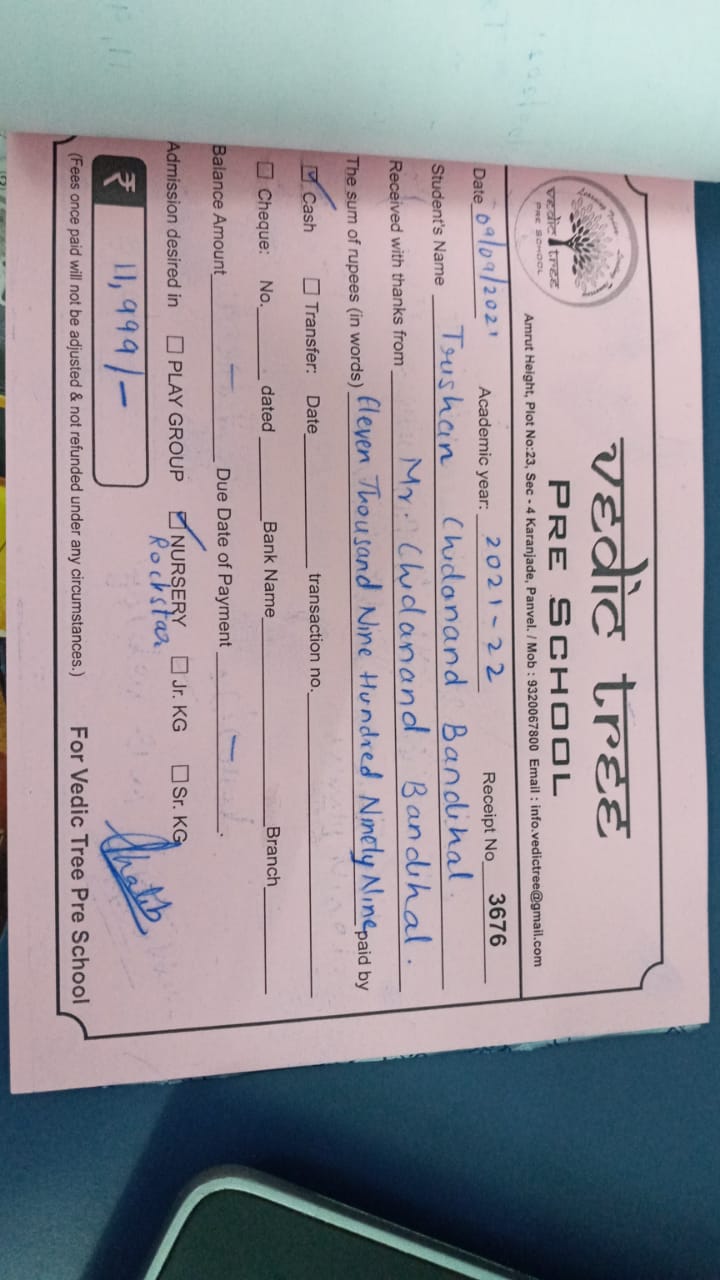 vedic tree
PRE SCHOOL
vedic tree
PRE SCHOOL
Amrut Height, Plot No:23, Sec - 4 Karanjade, Panvel. / Mob : 9320067800 Email : info.vedictree@gmail.com
Date 09/09/2021 Academic year: 2021-22 Receipt No 3676
Student's Name Trushan Chidanand Bandihal.
Received with thanks from Mr. Chidanand Bandihal.
The sum of rupees (in words) Eleven Thousand Nine Hundred Ninety Nine paid by
☑ Cash ☐ Transfer: Date transaction no.
☐ Cheque: No. dated Bank Name Branch
Balance Amount - Due Date of Payment -
Admission desired in ☐ PLAY GROUP ☑ NURSERY ☐ Jr. KG ☐ Sr. KG
Rockstar
₹ 11,999/-
(Fees once paid will not be adjusted & not refunded under any circumstances.) For Vedic Tree Pre School